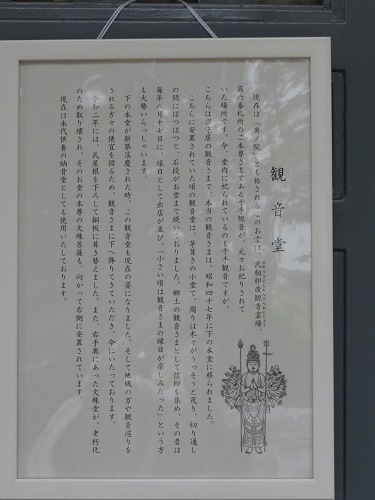 観音堂
現在は「奥ノ院」とも称されるこのお堂は、武相卯歳観音霊場、
第六番札所のご本尊さまである千手観音が、元々お祀りされて
いた場所です。今、堂内に祀られているのも千手観音ですが、
こちらは御前居の観音さまで、本当の観音さまは、昭和四十七年に下の本堂に移られました。
こちらに安置されていた頃の観音堂は、茅葺きの小堂で、周りは木々がうっそうと茂り、切り通し
の間にぽつぽつと、石段がお堂まで続いておりました。郷土の観音さまとして信仰を集め、その昔は
毎年八月十七日に、縁日として出店が並び、「小さい頃は観音さまの縁日が楽しみだった」という方
も大勢いらっしゃいます。
下の本堂が新築落慶された時、この観音堂も現在の姿になりました。そして地域の方や観音巡りを
される方々の便宜を図るため、観音さまに下へ降りてきていただき、今にいたっております。
令和二年には、瓦屋根を下ろして銅板に葺き替えました。また、右手奥にあった文殊堂が、老朽化
のため取り壊され、そのお堂の本尊の文殊菩薩も、向かって右側に安置されています。
現在は永代供養の納骨堂としても使用いたしております。